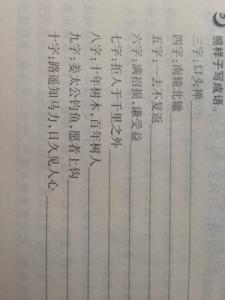 3 照样子写成语。
三字：口头禅
四字：南辕北辙
五字：一去不复返
六字：满招损，谦受益
七字：拒人于千里之外
八字：十年树木，百年树人
九字：姜太公钓鱼，愿者上钩
十字：路遥知马力，日久见人心